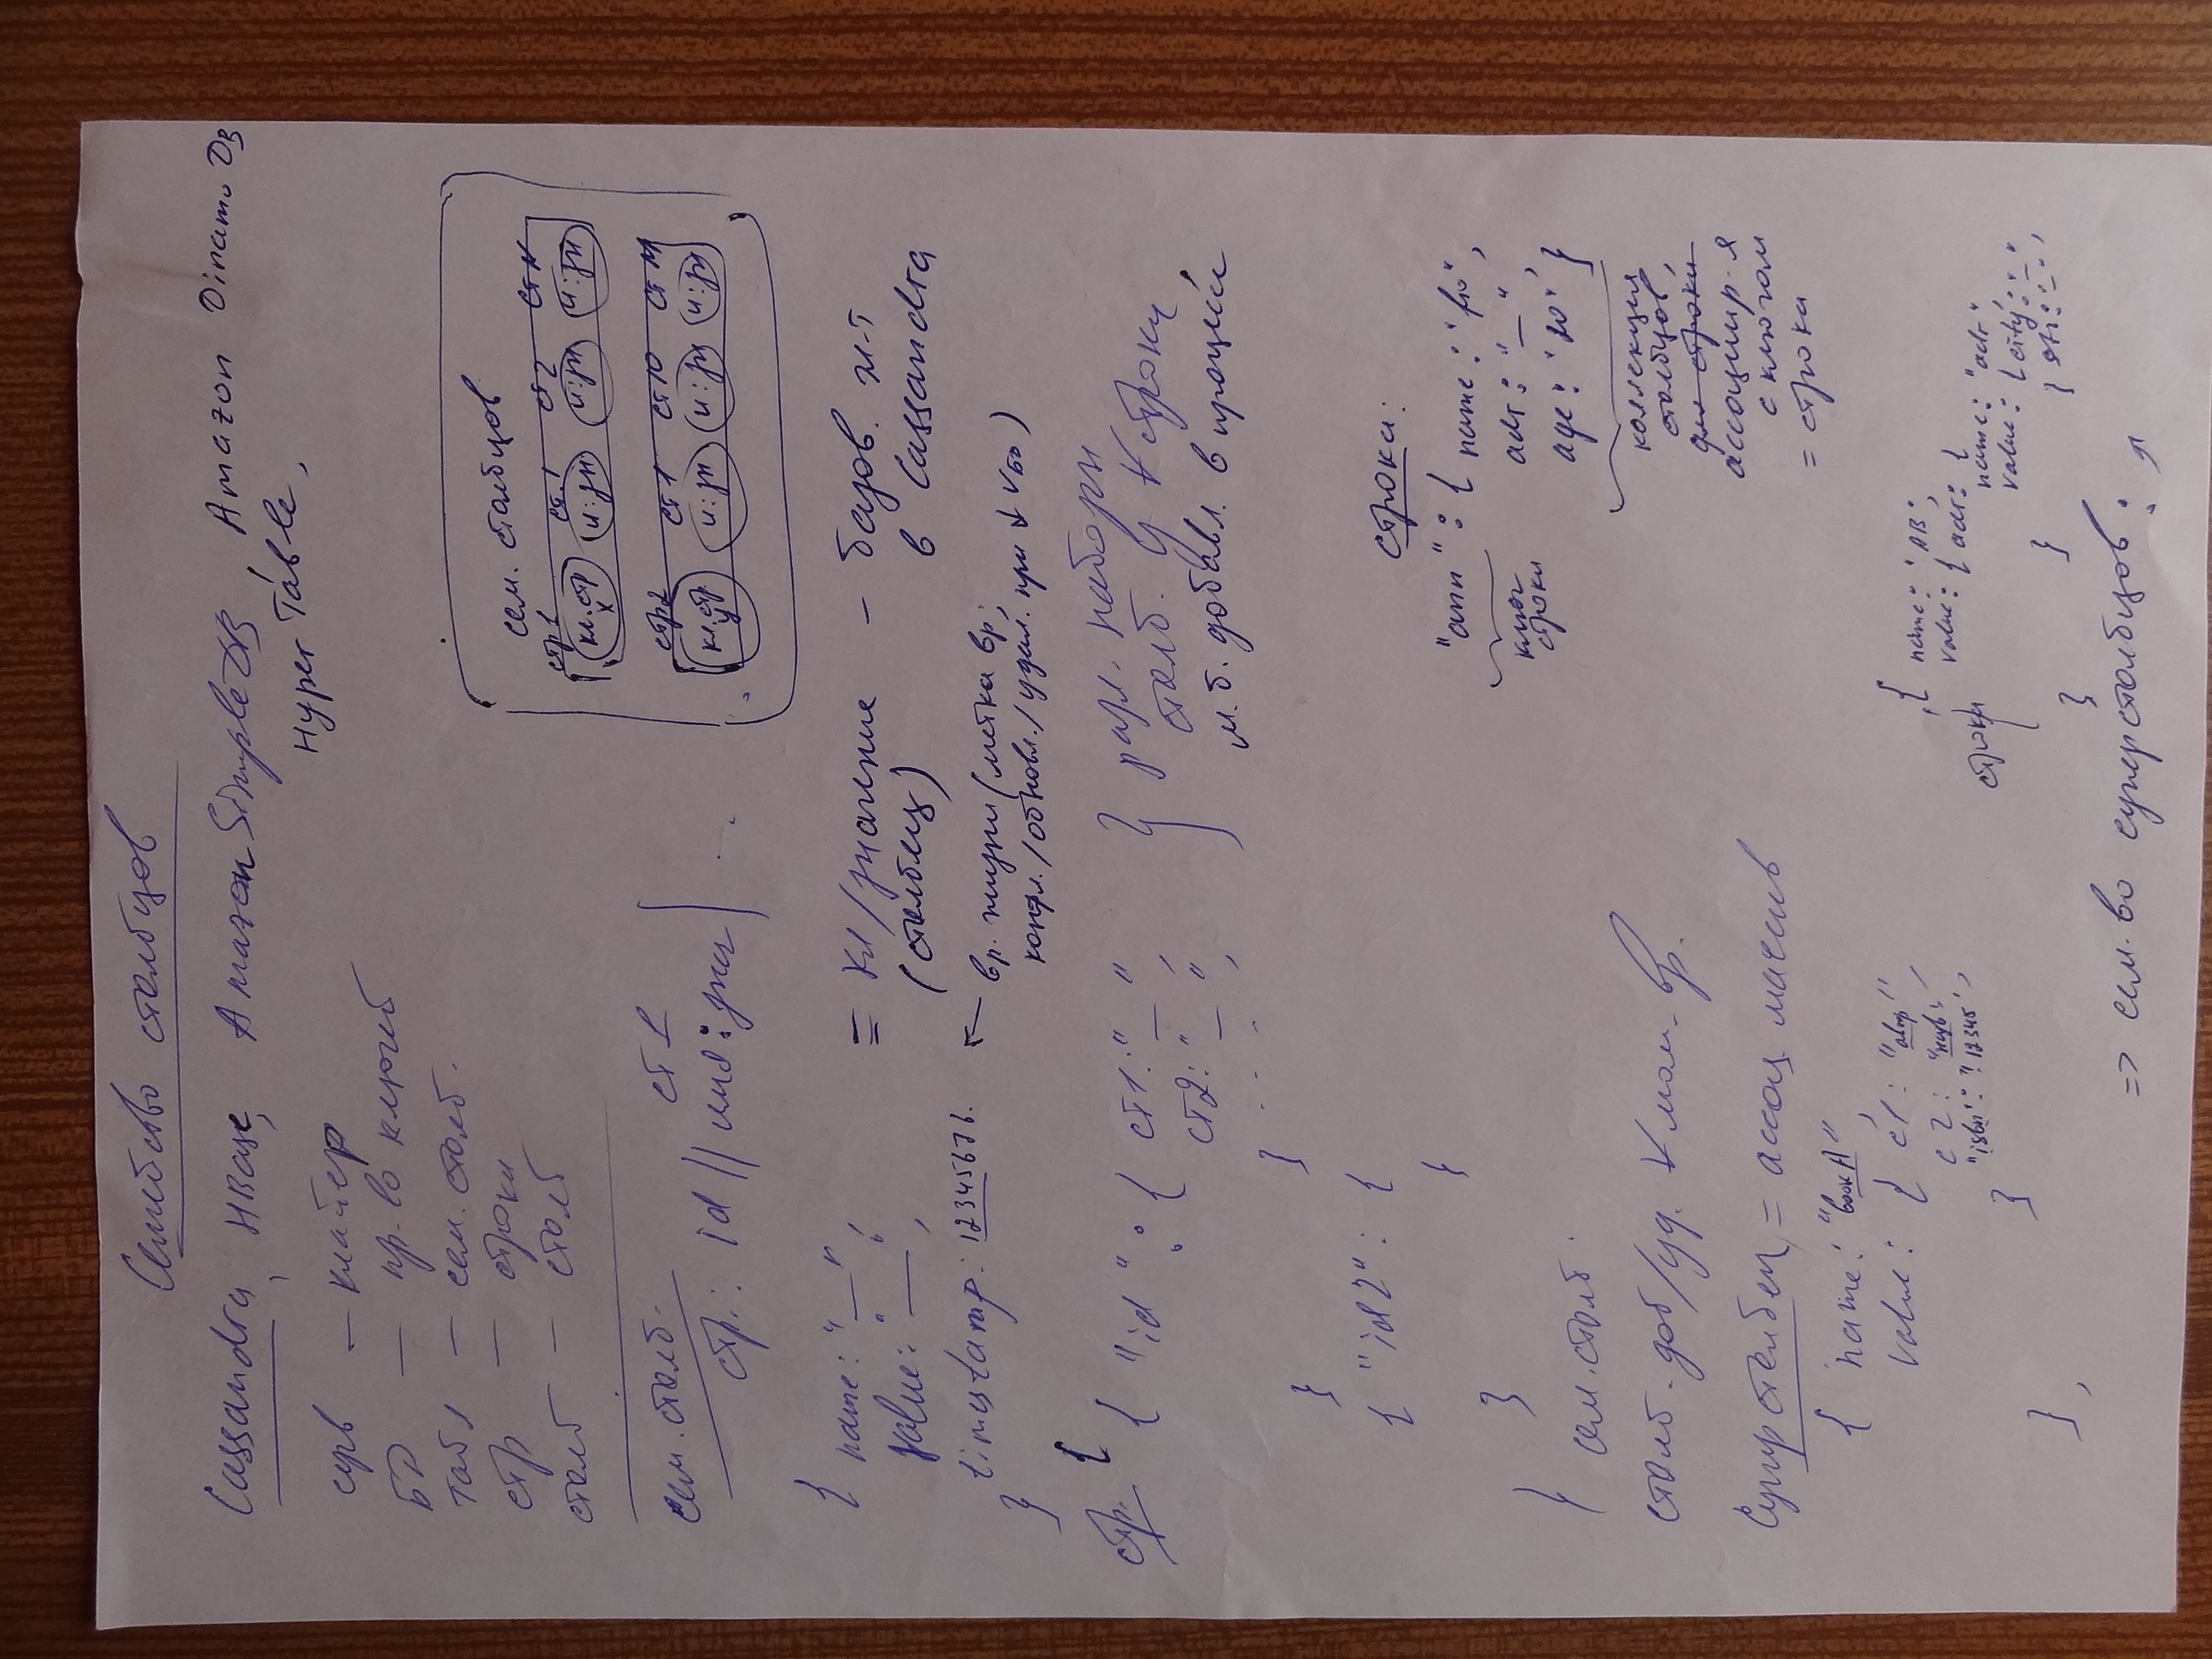 Семейство столбцов
Cassandra, HBase, Amazon SimpleDB, Amazon Dinamo DB
HyperTable,
серв — кластер
БД — пр. во ключей
табл — сем. столб.
стр — строки
столб — столб
сем. столб.
ст 1
стр.: id || имя : знач |
сем. столбцов
стр1 ст.1 ст2 стN
кл.стр X и:зн и:зн и:зн
стр2 ст1 ст10 стM
кл.стр. y и:зн и:зн и:зн
{ name: "—",
value: "—",
timestamp: 12345676.
}
= кл/значение — базов. эл-т
(столбец) в Cassandra
← вр. жизни (метка вр,
/обновл./удал. при ∀ )
стр. {
{ "id" : { ст1: "_",
ст2: "_",
. . . .
}
}
} разл. наборы
столб. у ∀ строки,
м.б. добавл. в процессе
{ "id2" : {
}
}
} сем. столб.
строка:
"ann" : { name: "fio",
adr: "_",
age: "20" }
ключ
строки
коллекция
столбцов,
для строки
ассоциир-я
с ключом
= строка
столб. доб/уд. ∀ мом. вр.
Суперстолбец = ассоц. массив
{ name: "bookA",
value: { c1: "автр",
c2: "назв",
"isbn": "12345",
}
},
строка
{ name: "AB",
value: { adr: {
name: "adr",
value: { city: "_",
} str: "_"
}
}
=> сем. во суперстолбцов :